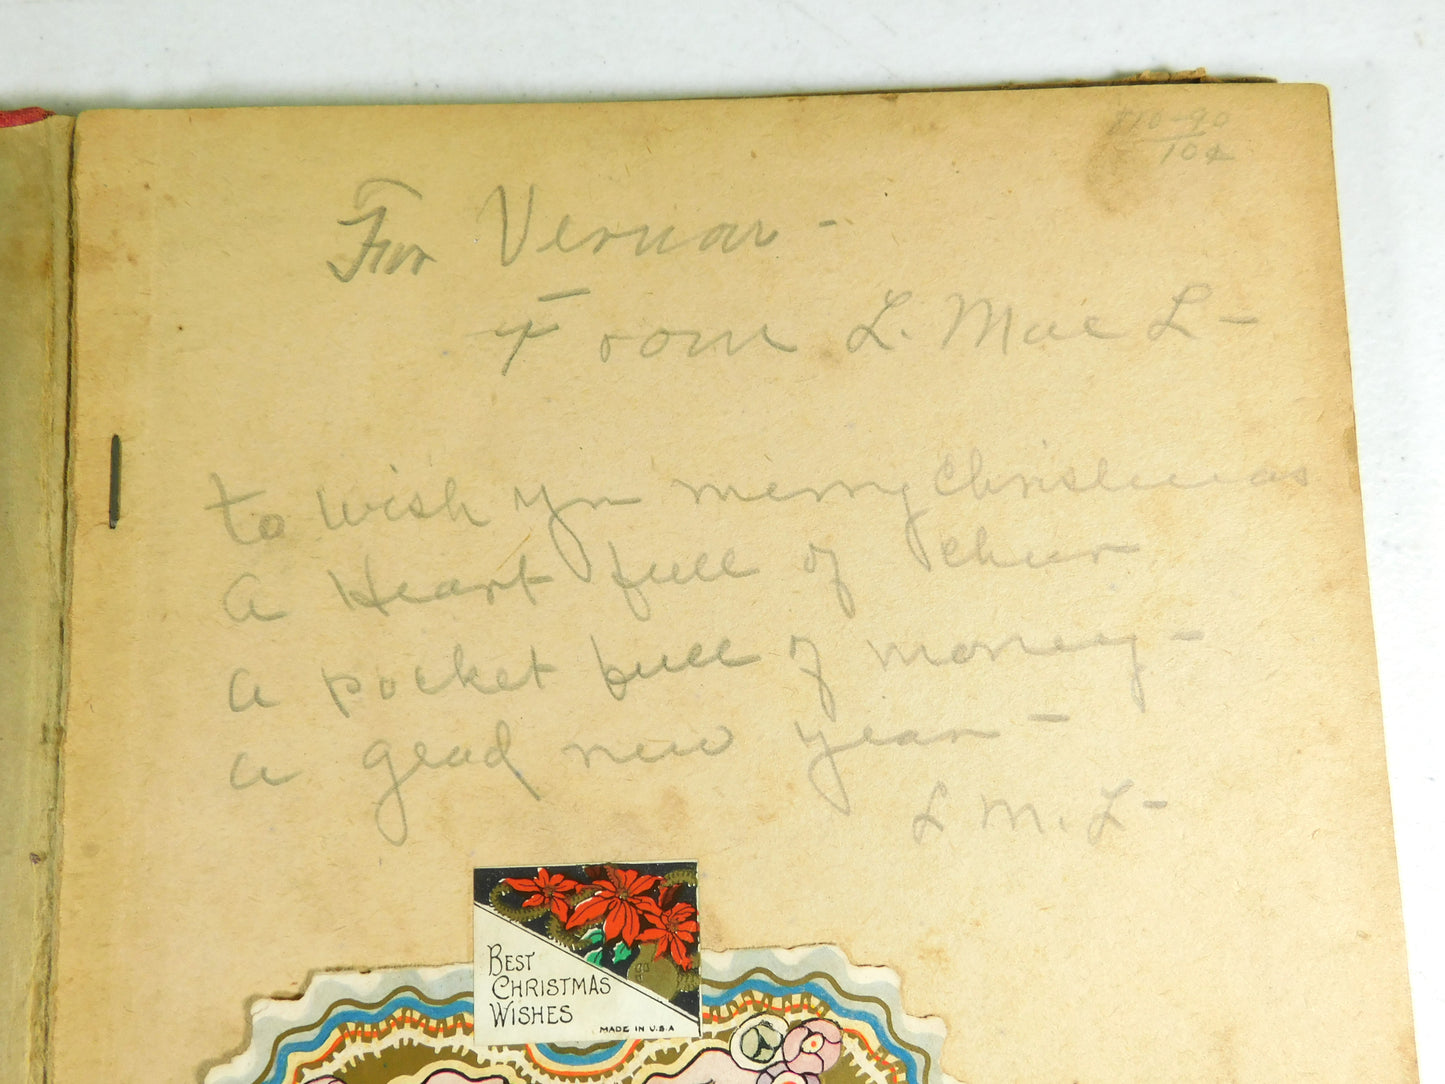 10¢
For Vernon -
From L. Mae L -
to wish you merry Christmas
A Heart full of cheer
A pocket full of money -
a glad new year -
L M. L -
BEST
CHRISTMAS
WISHES
MADE IN U.S.A